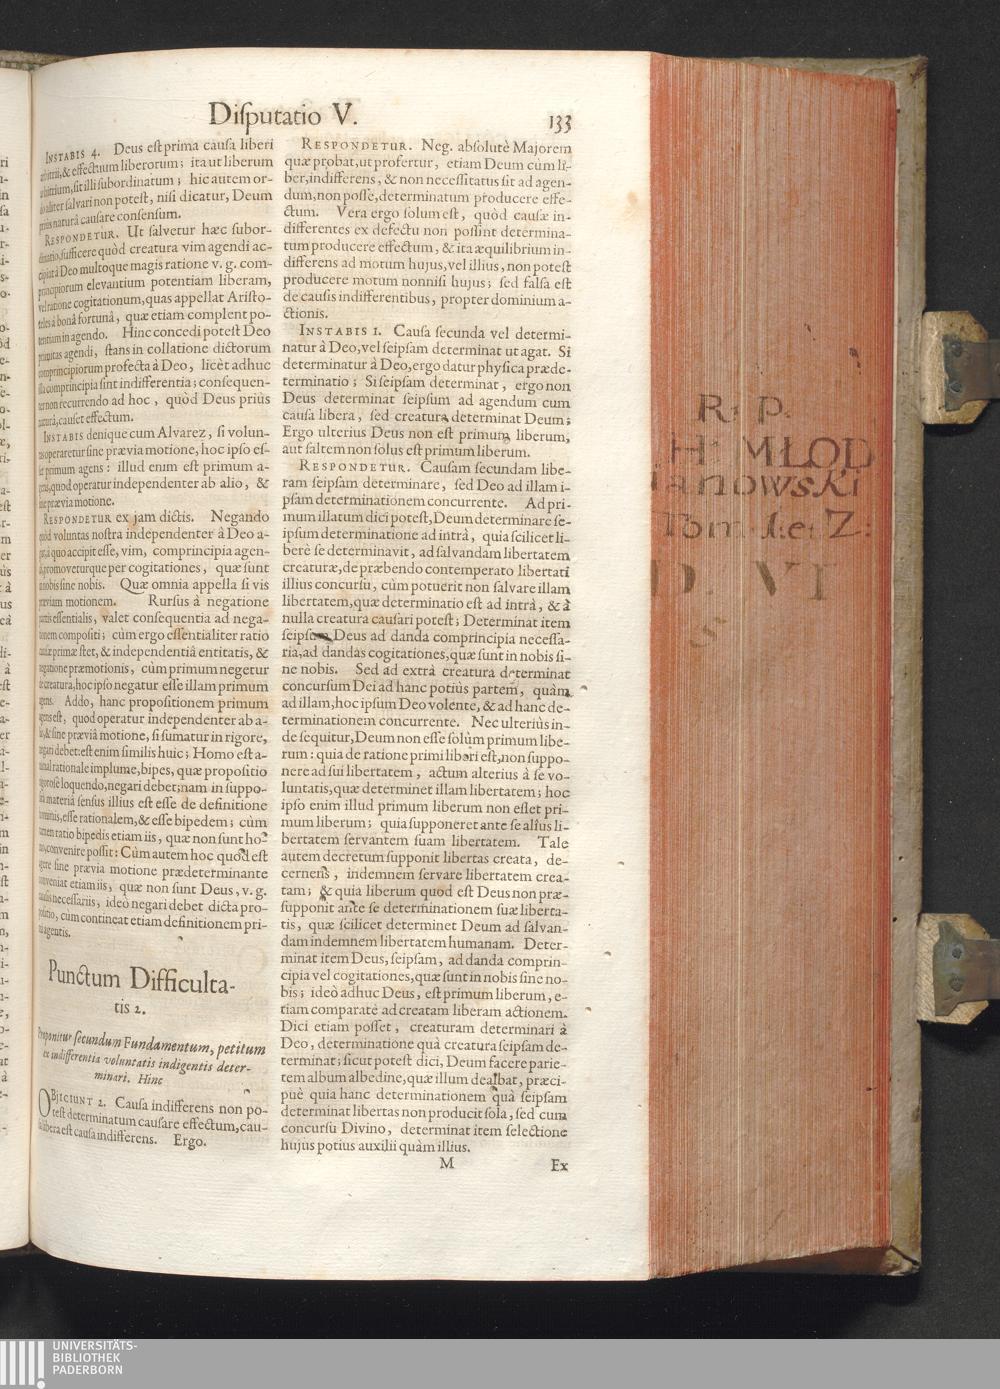 Disputatio V.
133
INSTABIS 4. Deus est prima causa liberi
arbitrii, & effectuum liberorum; ita ut liberum
arbitrium, sit illi subordinatum; hic autem or-
do aliter salvari non potest, nisi dicatur, Deum
priùs naturâ causare consensum.
RESPONDETUR. Ut salvetur hæc subor-
dinatio, sufficere quòd creatura vim agendi ac-
cipiat à Deo multoque magis ratione v. g. com-
principiorum elevantium potentiam liberam,
vel ratione cogitationum, quas appellat Aristo-
teles à bonâ fortunâ, quæ etiam complent po-
tentiam in agendo. Hinc concedi potest Deo
primitas agendi, stans in collatione dictorum
comprincipiorum profecta à Deo, licèt adhuc
illa comprincipia sint indifferentia; consequen-
ter non recurrendo ad hoc, quòd Deus priùs
naturâ, causet effectum.
INSTABIS denique cum Alvarez, si volun-
tas operaretur sine prævia motione, hoc ipso es-
set primum agens: illud enim est primum a-
gens, quod operatur independenter ab alio, &
sine prævia motione.
RESPONDETUR ex jam dictis. Negando
quòd voluntas nostra independenter â Deo a-
gat, à quo accipit esse, vim, comprincipia agen-
di, promoveturque per cogitationes, quæ sunt
in nobis sine nobis. Quæ omnia appella si vis
præviam motionem. Rursus à negatione
partis essentialis, valet consequentia ad nega-
tionem compositi; cùm ergo essentialiter ratio
causæ primæ stet, & independentiâ entitatis, &
negatione præmotionis, cùm primum negetur
de creatura, hoc ipso negatur esse illam primum
agens. Addo, hanc propositionem primum
agens est, quod operatur independenter ab a-
lio, & sine præviâ motione, si sumatur in rigore,
negari debet: est enim similis huic; Homo est a-
nimal rationale implume, bipes, quæ propositio
rigorosè loquendo, negari debet; nam in suppo-
sita materiâ sensus illius est esse de definitione
hominis, esse rationalem, & esse bipedem; cùm
tamen ratio bipedis etiam iis, quæ non sunt ho-
mo, convenire possit: Cùm autem hoc quod est
agere sine prævia motione prædeterminante
conveniat etiam iis, quæ non sunt Deus, v. g.
causis necessariis, ideò negari debet dicta pro-
positio, cum contineat etiam definitionem pri-
mi agentis.
Punctum Difficulta-
tis 2.
Proponitur secundum Fundamentum, petitum
ex indifferentia voluntatis indigentis deter-
minari. Hinc
OBJICIUNT 2. Causa indifferens non po-
test determinatum causare effectum, cau-
sa libera est causa indifferens. Ergo.
RESPONDETUR. Neg. absolutè Majorem
quæ probat, ut profertur, etiam Deum cùm li-
ber, indifferens, & non necessitatus sit ad agen-
dum, non posse, determinatum producere effe-
ctum. Vera ergo solum est, quòd causæ in-
differentes ex defectu non possint determina-
tum producere effectum, & ita æquilibrium in-
differens ad motum hujus, vel illius, non potest
producere motum nonnisi hujus; sed falsa est
de causis indifferentibus, propter dominium a-
ctionis.
INSTABIS 1. Causa secunda vel determi-
natur à Deo, vel seipsam determinat ut agat. Si
determinatur à Deo, ergo datur physica præde-
terminatio; Si seipsam determinat, ergo non
Deus determinat seipsum ad agendum cum
causa libera, sed creatura determinat Deum;
Ergo ulterius Deus non est primum liberum,
aut saltem non solus est primum liberum.
RESPONDETUR. Causam secundam libe-
ram seipsam determinare, sed Deo ad illam i-
psam determinationem concurrente. Ad pri-
mum illatum dici potest, Deum determinare se-
ipsum determinatione ad intrâ, quia scilicet li-
berè se determinavit, ad salvandam libertatem
creaturæ, de præbendo contemperato libertati
illius concursu, cùm potuerit non salvare illam
libertatem, quæ determinatio est ad intrà, & à
nulla creatura causari potest; Determinat item
seipsum Deus ad danda comprincipia necessa-
ria, ad dandas cogitationes, quæ sunt in nobis si-
ne nobis. Sed ad extrà creatura determinat
concursum Dei ad hanc potiùs partem, quàm
ad illam, hoc ipsum Deo volente, & ad hanc de-
terminationem concurrente. Nec ulteriùs in-
de sequitur, Deum non esse solùm primum libe-
rum: quia de ratione primi liberi est, non suppo-
nere ad sui libertatem, actum alterius à se vo-
luntatis, quæ determinet illam libertatem; hoc
ipso enim illud primum liberum non esset pri-
mum liberum; quia supponeret ante se alius li-
bertatem servantem suam libertatem. Tale
autem decretum supponit libertas creata, de-
cernens, indemnem servare libertatem crea-
tam; & quia liberum quod est Deus non præ-
supponit ante se determinationem suæ liberta-
tis, quæ scilicet determinet Deum ad salvan-
dam indemnem libertatem humanam. Deter-
minat item Deus, seipsam, ad danda comprin-
cipia vel cogitationes, quæ sunt in nobis sine no-
bis; ideò adhuc Deus, est primum liberum, e-
tiam comparatè ad creatam liberam actionem.
Dici etiam posset, creaturam determinari à
Deo, determinatione quâ creatura seipsam de-
terminat; sicut potest dici, Deum facere parie-
tem album albedine, quæ illum dealbat, præci-
puè quia hanc determinationem quâ seipsam
determinat libertas non producit sola, sed cum
concursu Divino, determinat item selectione
hujus potius auxilii quàm illius.
M
Ex
R: P.
MŁOD
ianowski
Tom 1: et 2:
D. VI
S
UNIVERSITÄTS-
BIBLIOTHEK
PADERBORN